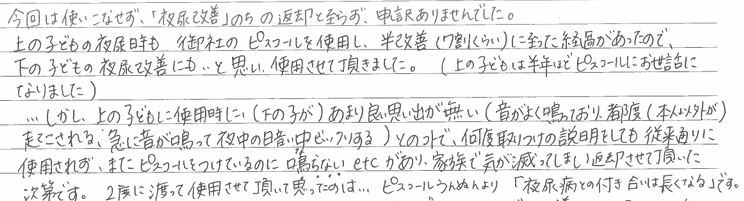 今回は使いこなせず、「夜尿改善」のちの返却と至らず、申訳ありませんでした。
上の子どもの夜尿時も 御社の ピスコールを使用し、半改善(7割くらい)に至った経過があったので、
下の子どもの夜尿改善にも…と思い、使用させて頂きました。(上の子どもは半年ほどピスコールにお世話に
なりました)
…しかし、上の子どもに使用時に、(下の子が)あまり良い思い出が無い(音がよく鳴っており、都度(本人以外が)
起こされる、急に音が鳴って夜中の暗い中ビックリする)との事で、何度取りつけの説明をしても従来通りに
使用されず、またピスコールをつけているのに鳴らない etc があり、家族で気が滅ってしまい返却させて頂いた
次第です。2度に渡って使用させて頂いて思ったのは… ピスコールうんぬんより「夜尿病との付き合いは長くなる」です。